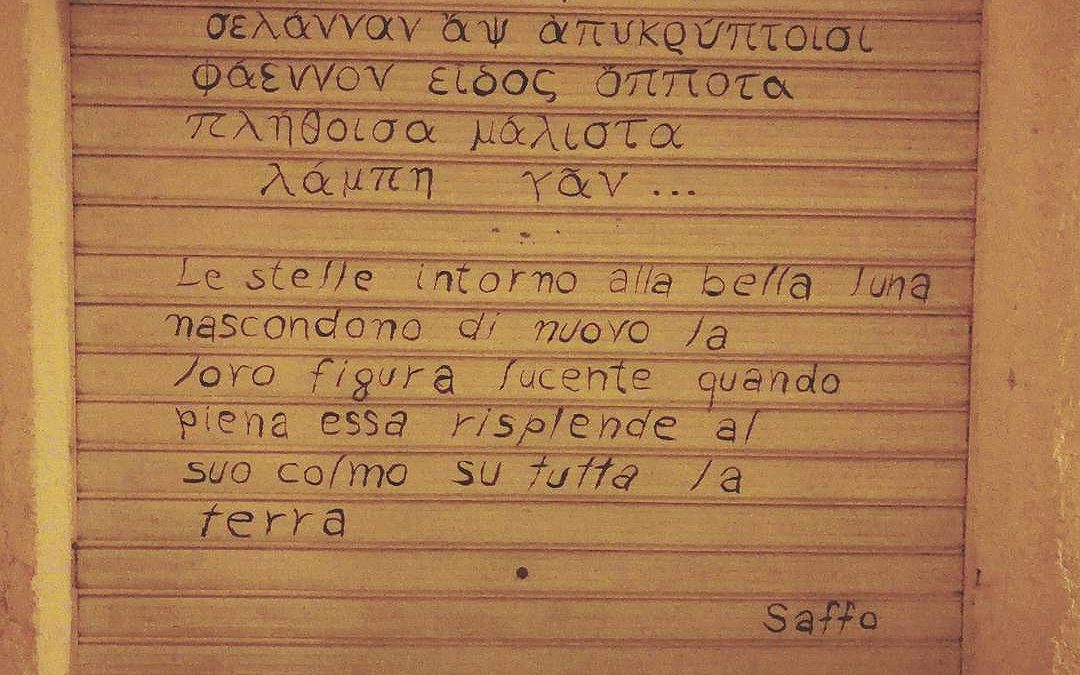 σελάνναν ἂψ ἀπυκρύπτοισι
φάεννον εἶδος ὄπποτα
πλήθοισα μάλιστα
λάμπη γᾶν ...
Le stelle intorno alla bella luna
nascondono di nuovo la
loro figura lucente quando
piena essa risplende al
suo colmo su tutta la
terra
Saffo